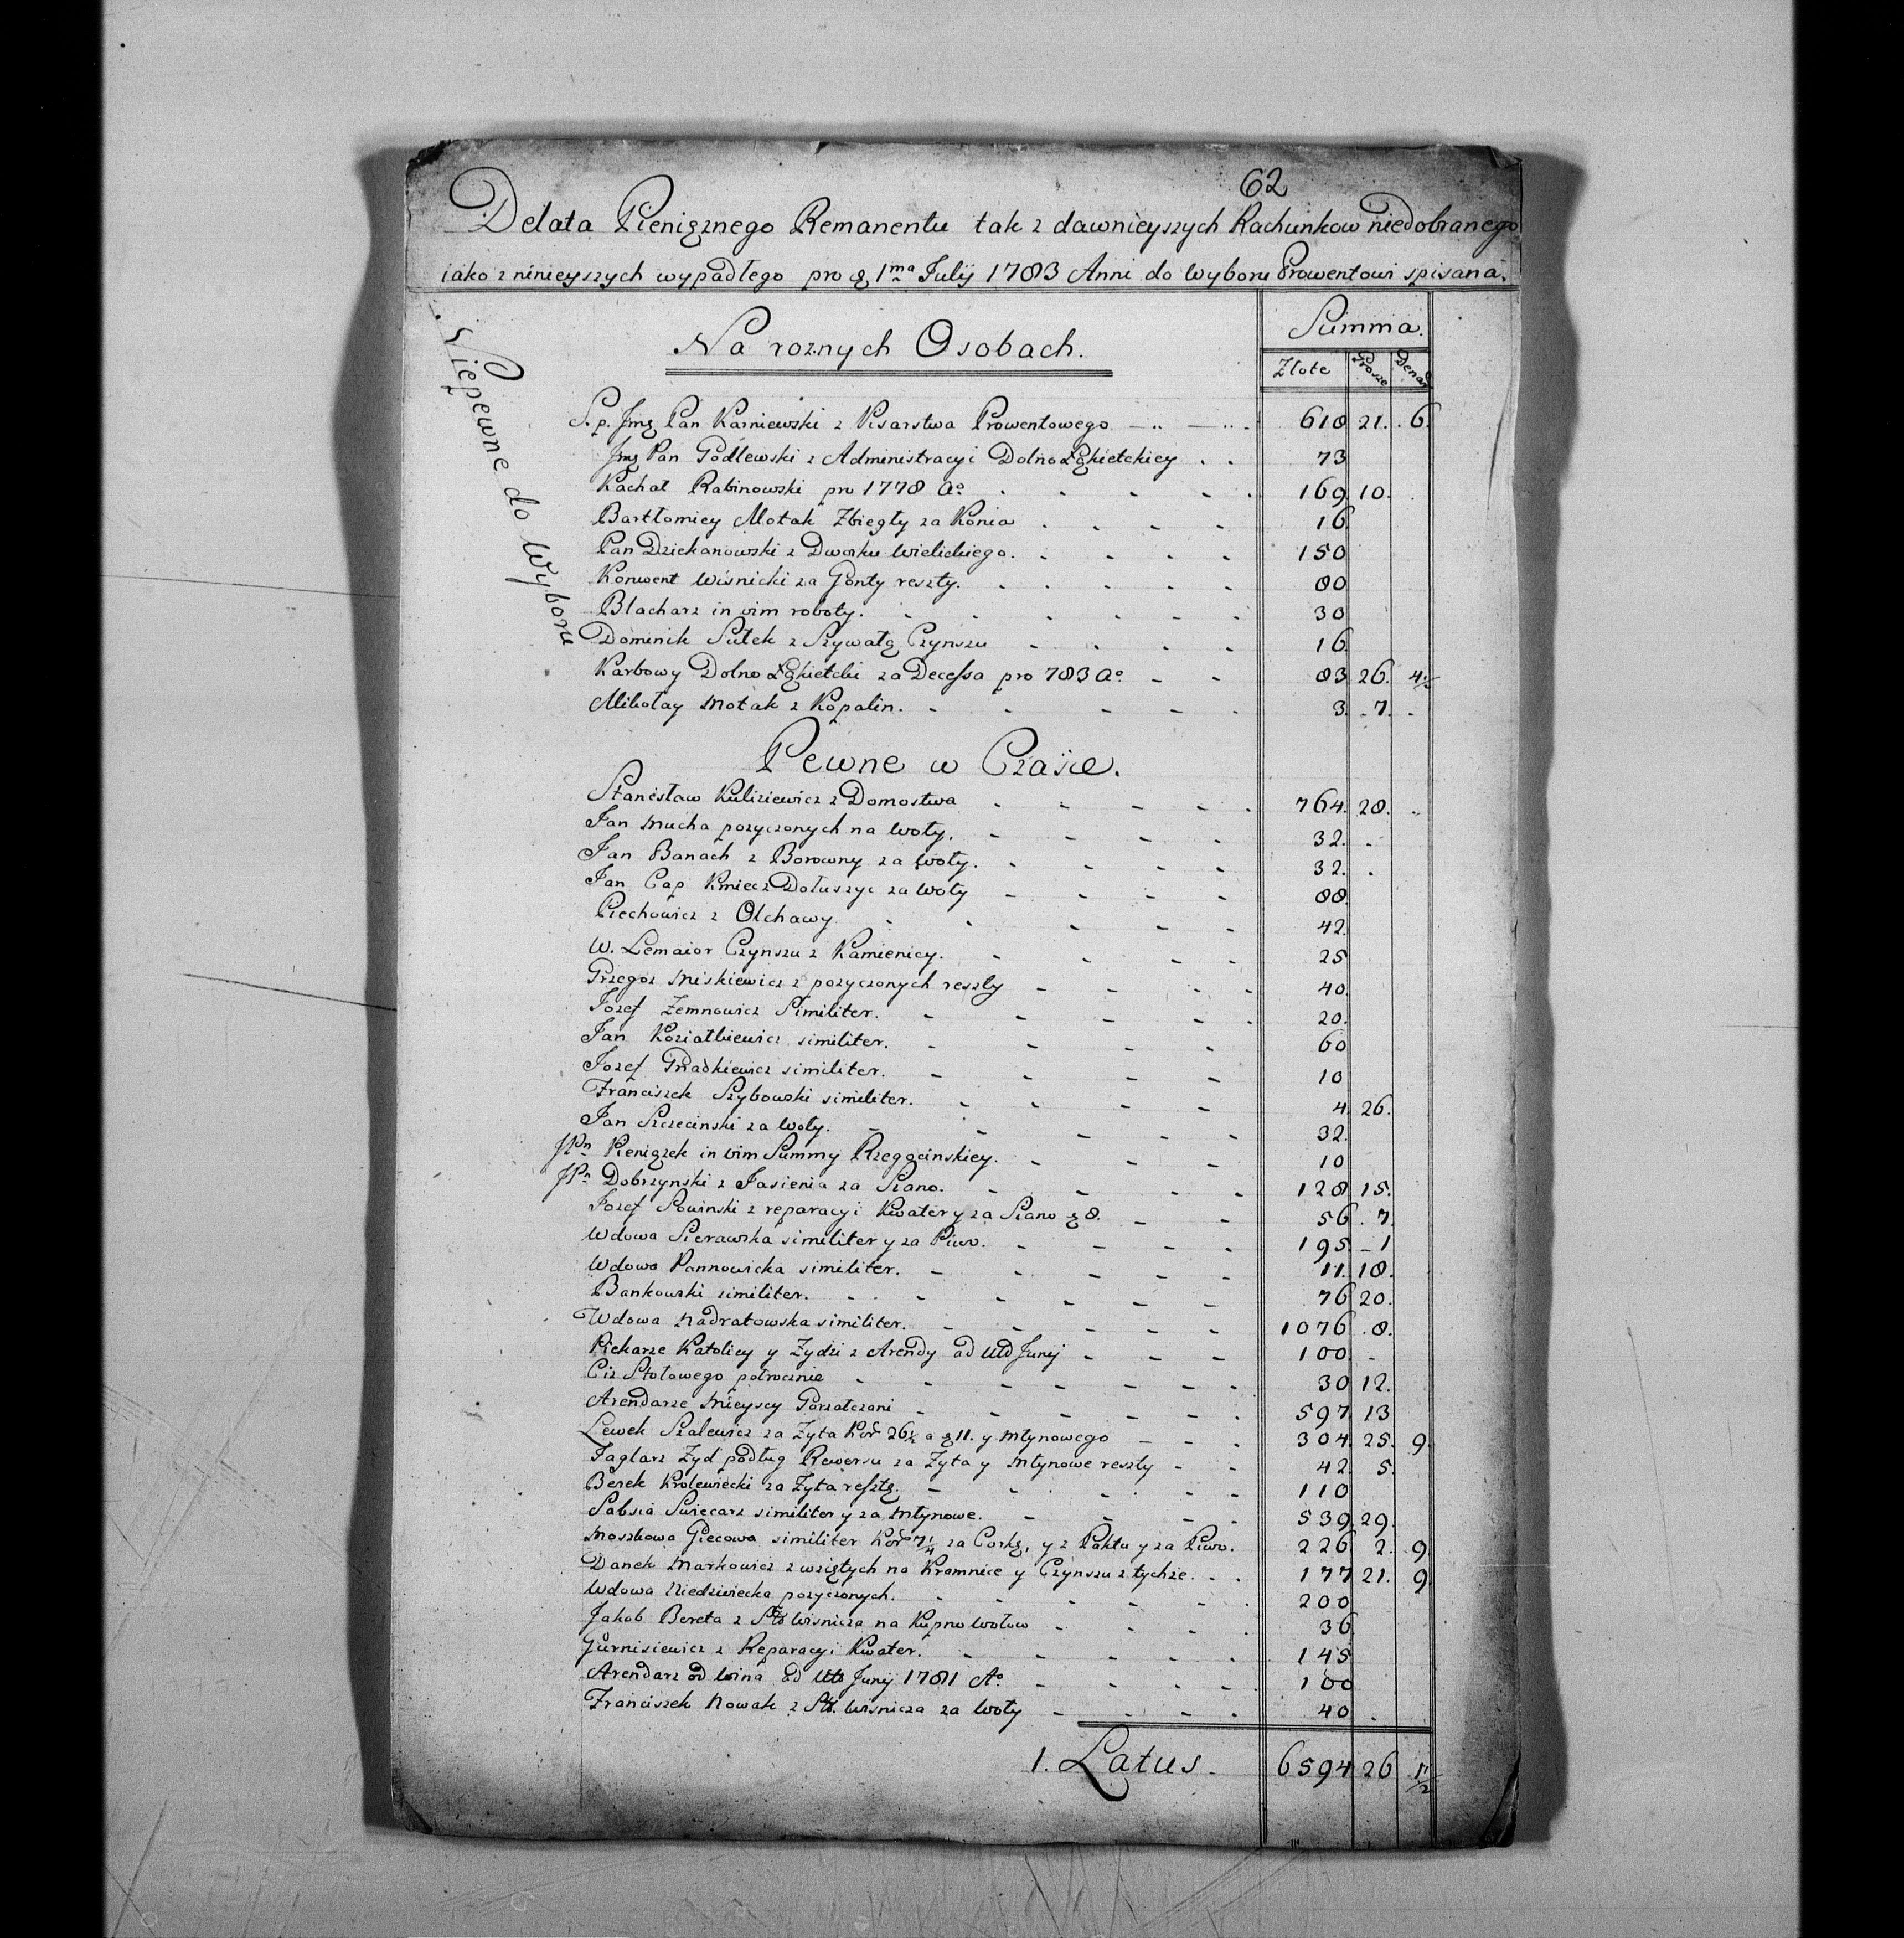 62
Delata Pieniężnego Remanentu tak z dawnieyszych Rachunkow niedobranego
iako z ninieyszych wypadłego pro 1ma Julij 1783 Anni do wyboru Prowentowi spisana.
Niepewne do Wyboru
Na roznych Osobach. Summa.
Złote Grosze Denar
S. p. Jmę Pan Karniewski z Pisarstwa Prowentowego 618 21. 6.
Jmę Pan Godlewski z Administracyi Dolno Łąkietckiey 73
Kachał Rabinowski pro 1778 Ao 169 10.
Bartłomiey Motak Zbiegły za Konia 16
Pan Dziekanowski z Dworku Wielickiego. 150
Konwent Wisnicki za Gonty reszty. 80
Blacharz in vim roboty. 30
Dominik Sułek z Szywałą Czynszu 16
Karbowy Dolno Łąkietcki za Decessa pro 783 Ao 83 26. 4½
Mikołay Motak z Kopalin. 3. 7.
Pewne w Czasie.
Stanisław Kuliziewicz z Domostwa 764. 28.
Jan Mucha pozyczonych na Woły. 32.
Jan Banach z Borowny za woły. 32.
Jan Cap Kmiec z Dołuszyc za Woły 88.
Piechowicz z Olchawy. 42.
W. Lemaior Czynszu z Kamienicy. 25
Grzegorz Miskiewicz z pozyczonych reszty 40.
Jozef Zemnowicz Similiter. 20.
Jan Koziatkiewicz similiter. 60
Jozef Gładkiewicz similiter. 10
Franciszek Szybowski similiter. 4. 26.
Jan Szczecinski za Woły. 32.
JPn Pieniązek in vim Summy Rzegocinskiey. 10
JPn Dobrzynski z Jasienia za Siano. 128 15.
Jozef Sowinski z reparacyi Kwater y za Siano 8. 56. 7.
Wdowa Sierawska similiter y za Piwo. 195 1
Wdowa Pannowicka similiter. 11. 18.
Bankowski similiter. 76 20.
Wdowa Nadratowska similiter. 1076 8.
Piekarze Katolicy y Zydzi z Arendy ad Junij 100.
Ciz Stołowego połrocznie 30 12.
Arendarze Mieyscy Gorzałczani 597 13
Lewek Szalewicz za Zyta Kor 26½ a 11. y Młynowego 304. 25. 9.
Jaglarz Zyd podług Rewersu za Zyta y Młynowe reszty 42. 5.
Berek Krolewiecki za Zyta resztę. 110
Sabsia Swiecarz similiter y za Młynowe. 539. 29.
Moszkowa Giecowa similiter Kor 7¼ za Corkę, y z Paktu y za Piwo. 226 2. 9.
Danek Markowicz z wziętych na Kramnice y Czynszu z tychze. 177 21. 9.
Wdowa Niedzwiecka pozyczonych. 200
Jakob Bereta z Wisnicza na Kupno Wołow 36
Gurnisiewicz z Reparacyi Kwater. 145
Arendarz od Wina ad Junij 1781 Ao 100
Franciszek Nowak z Wisnicza za Woły 40
1. Latus. 6594 26 1½